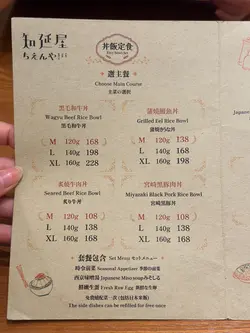 知延屋
ちえんや
丼飯定食
Set Selection
選主餐
Choose Main Course
主菜の選択
黑毛和牛丼
Wagyu Beef Rice Bowl
黒毛和牛丼
M 120g 168
L 140g 198
XL 160g 228
蒲燒鰻魚丼
Grilled Eel Rice Bowl
蒲焼うな丼
M 120g 138
L 140g 168
XL 160g 198
炙燒牛肉丼
Seared Beef Rice Bowl
炙り牛丼
M 120g 108
L 140g 138
XL 160g 168
宮崎黑豚肉丼
Miyazaki Black Pork Rice Bowl
宮崎黒豚丼
M 120g 108
L 140g 138
XL 160g 168
套餐包含 Set Menu セットメニュー
時令前菜 Seasonal Appetizer 季節の前菜
西京味噌湯 Japanese Miso soup みそしる
鮮雞生蛋 Fresh Raw Egg 新鮮な生卵
The side dishes can be refilled for free once